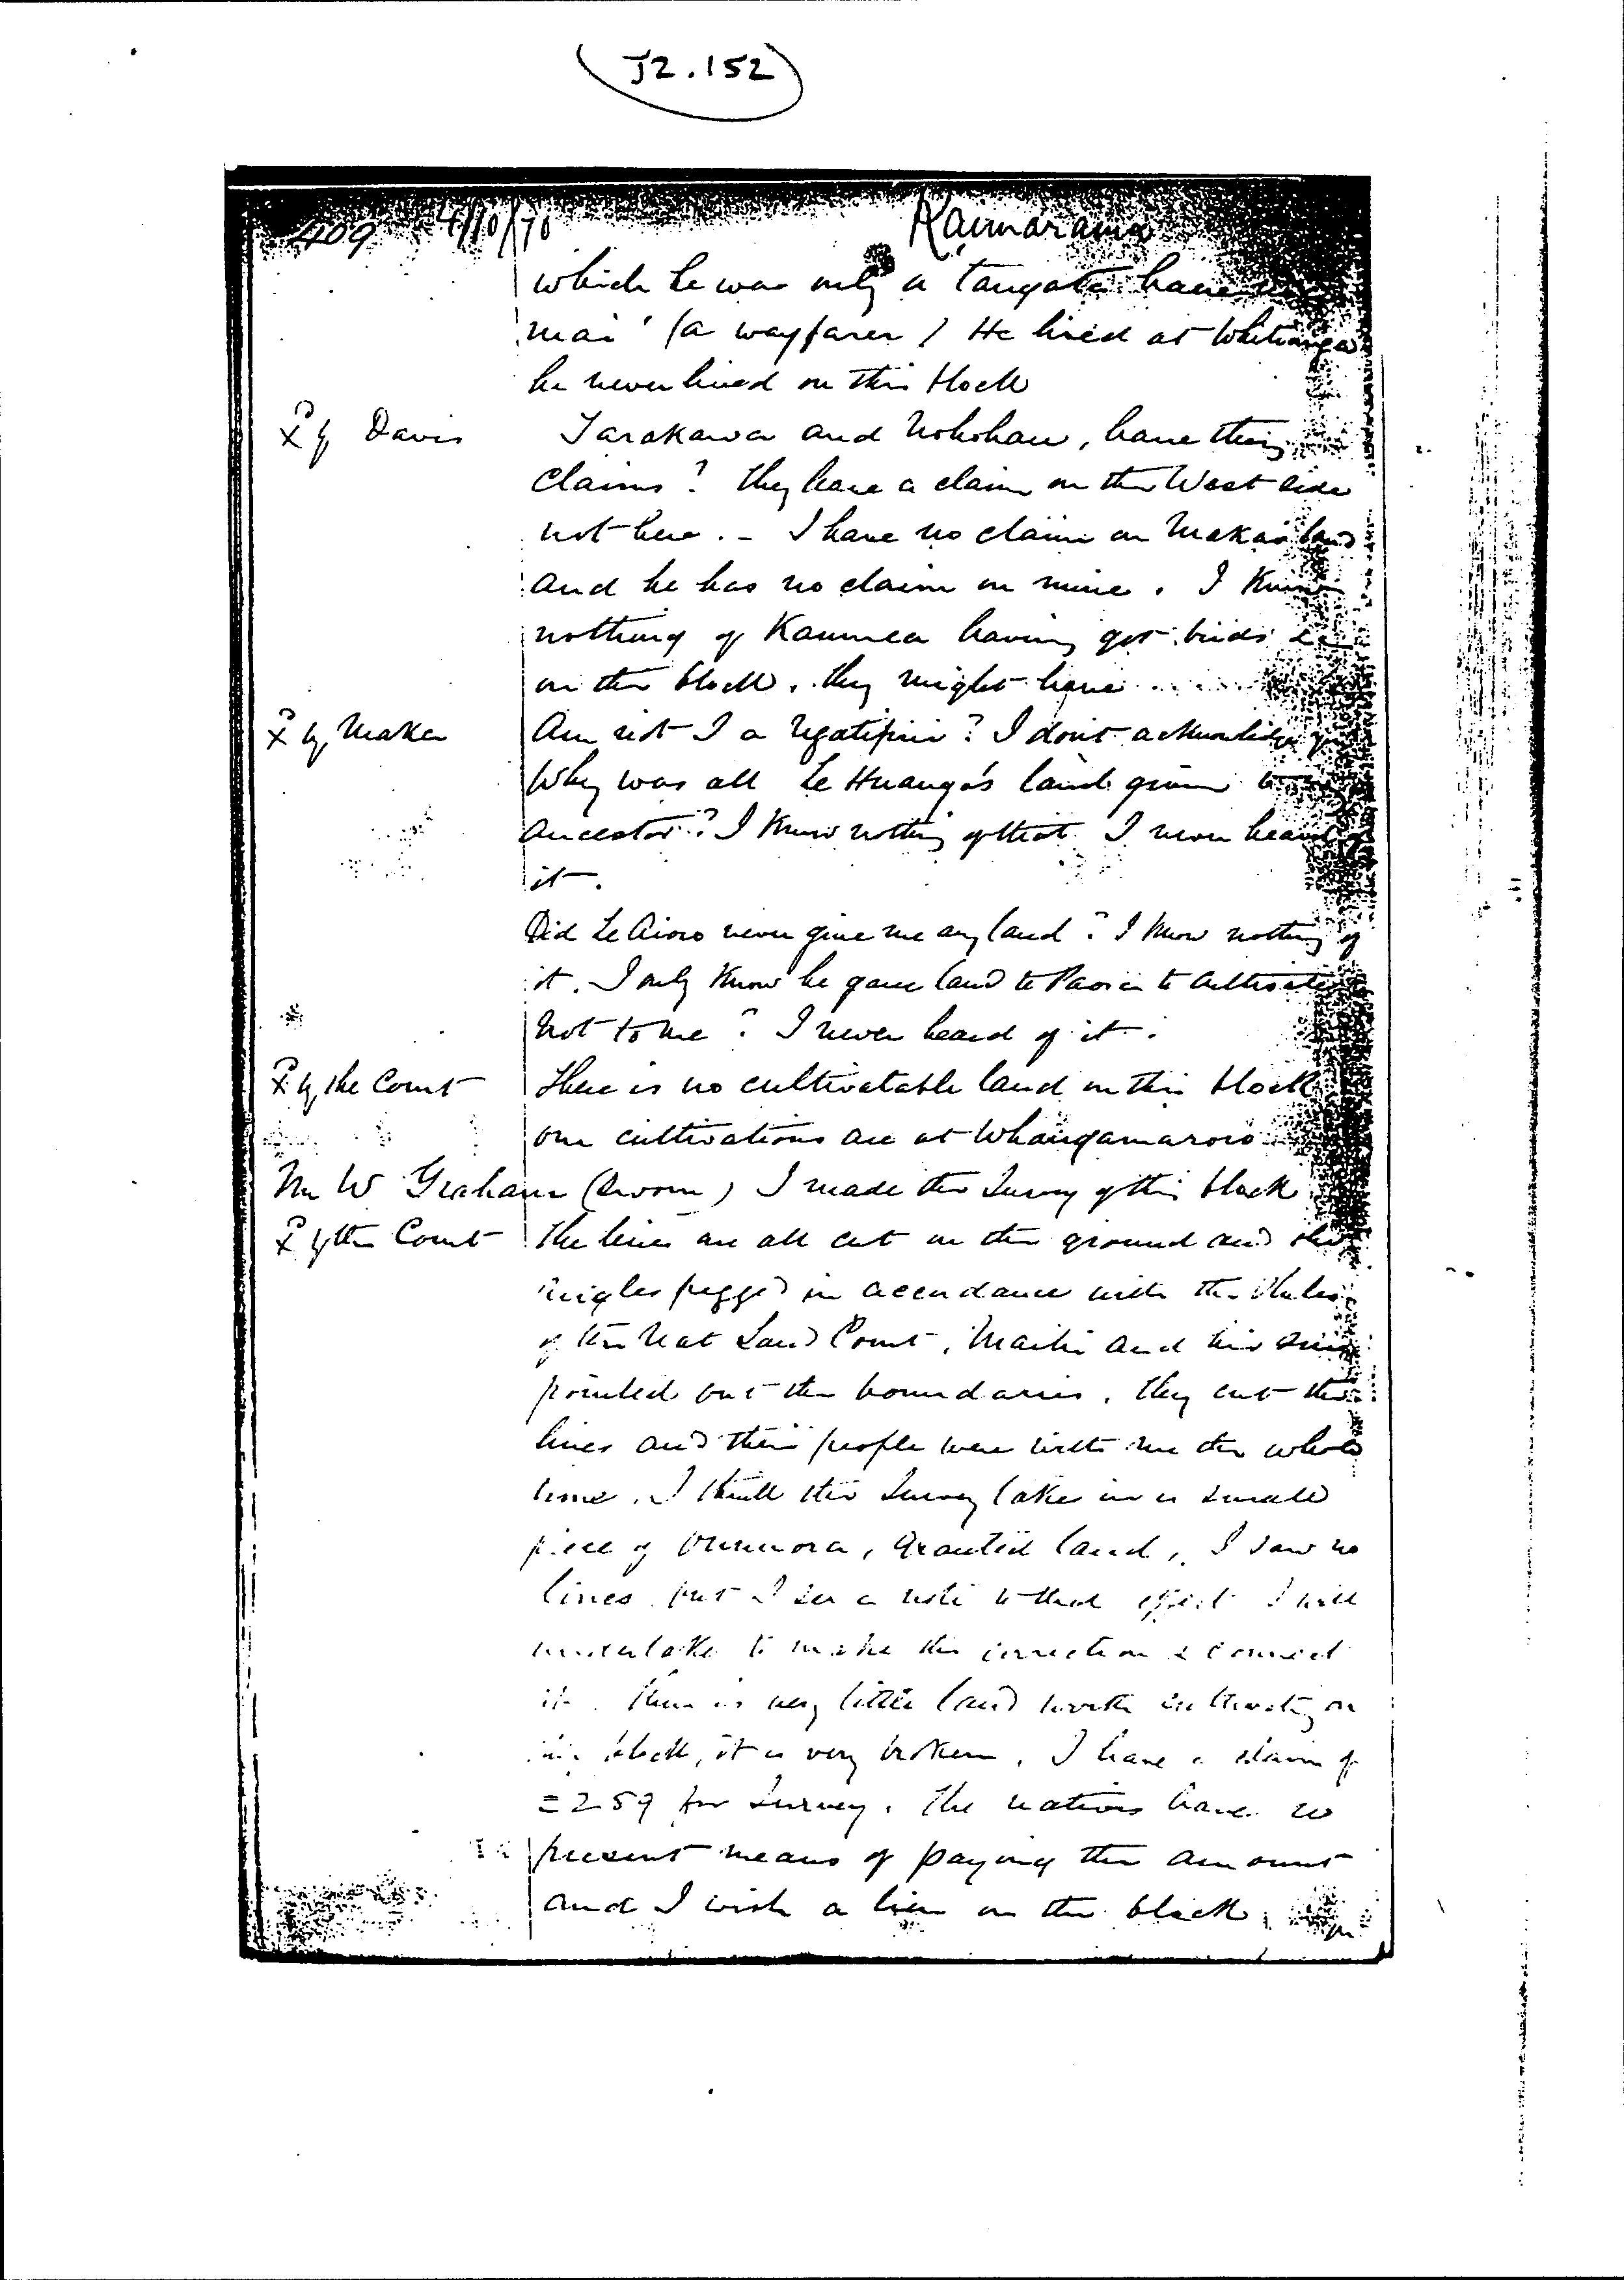 J2.152
409 4/10/70 Kaimarama
which he was only a tangata haere
mai' (a wayfarer) He lived at Whitianga
he never lived on this block
X by Davis Tarakawa and, have they
claims? They have a claim on the West side
not here. - I have no claim on land
and he has no claim on mine. I know
nothing of Kaumea having got birds &c
on the block. They might have
X by Maka Am not I a Ngatipiri? I dont acknowledge you
Why was all Te Huanga's land given to
ancestor? I know nothing of that. I never heard of
it.
Did Te Aioro never give me any land? I know nothing of
it. I only know he gave land to Paora to cultivate
Not to me? I never heard of it.
X by the Court There is no cultivatable land on this block
our cultivations are at Whangamaroro
Mr W Graham (sworn) I made the Survey of this block
X by the Court The lines are all cut on the ground and the
angles pegged in accordance with the Rules
of the Nat Land Court. and his
pointed out the boundaries. They cut the
lines and their people were with me the whole
time. I think the Survey takes in a small
piece of, Granted land. I saw no
lines but I see a note to that effect I will
undertake to make the correction & connect
it. There is very little land worth cultivating on
this block, it is very broken. I have a claim of
£259 for Survey. The natives have no
present means of paying the amount
and I wish a lien on the block.